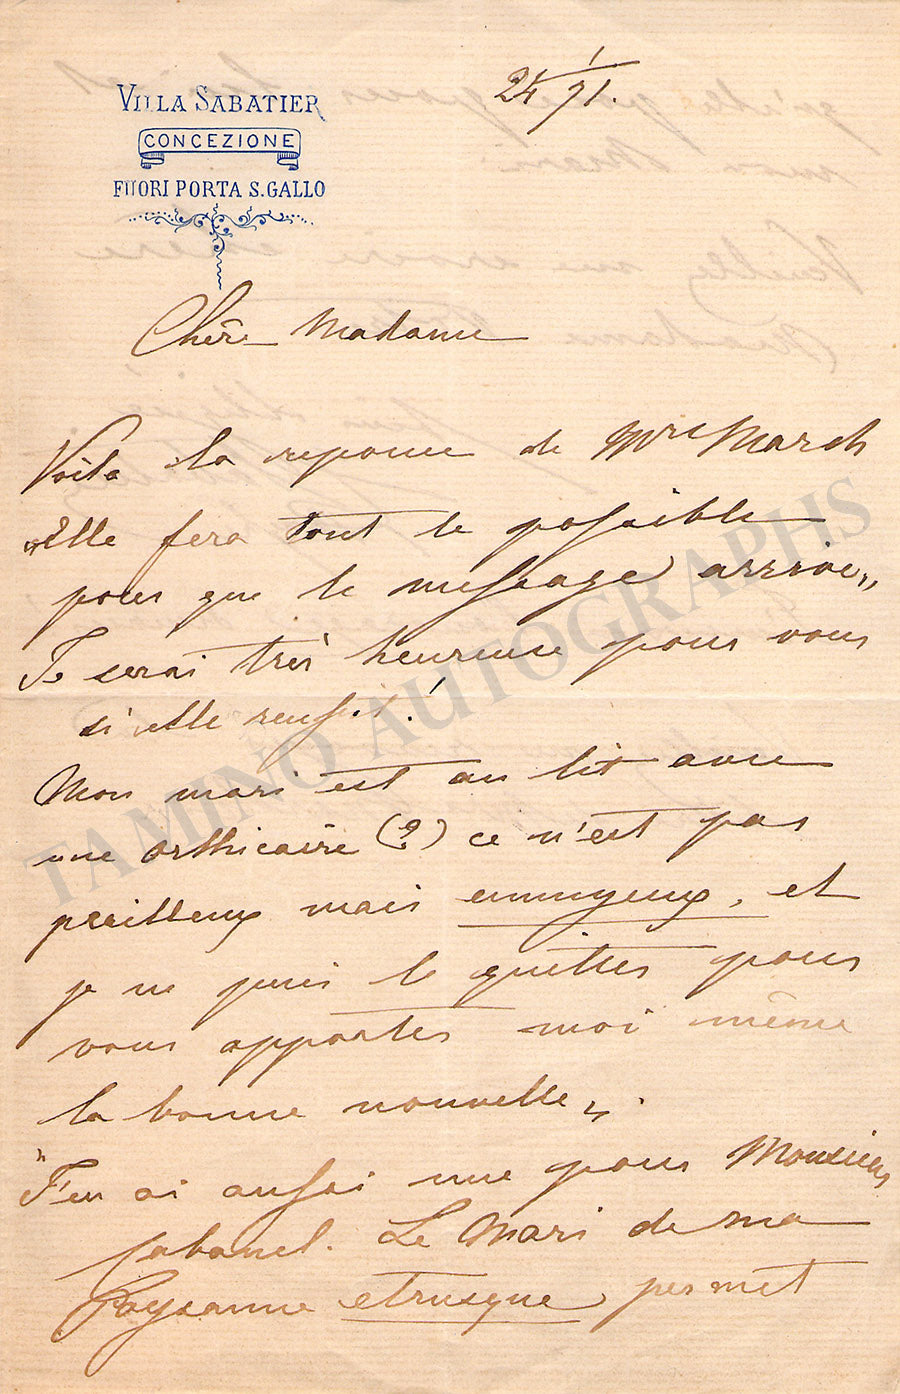 VILLA SABATIER
CONCEZIONE
FUORI PORTA S. GALLO
24/1 91.
Chère Madame
Voila la reponse de Mme March
"Elle fera tout le possible
pour que le message arrive"
Je serai très heureuse pour vous
si elle reussit!
Mon mari est au lit avec
une orthicaire (?) ce n'est pas
perilleux mais ennuyeux, et
je ne puis le quitter pour
vous apporter moi même
la bonne nouvelle".
"J'en ai aussi une pour Monsieur
Cabanel. Le Mari de ma
Paysanne etrusque permet
TAMINO AUTOGRAPHS